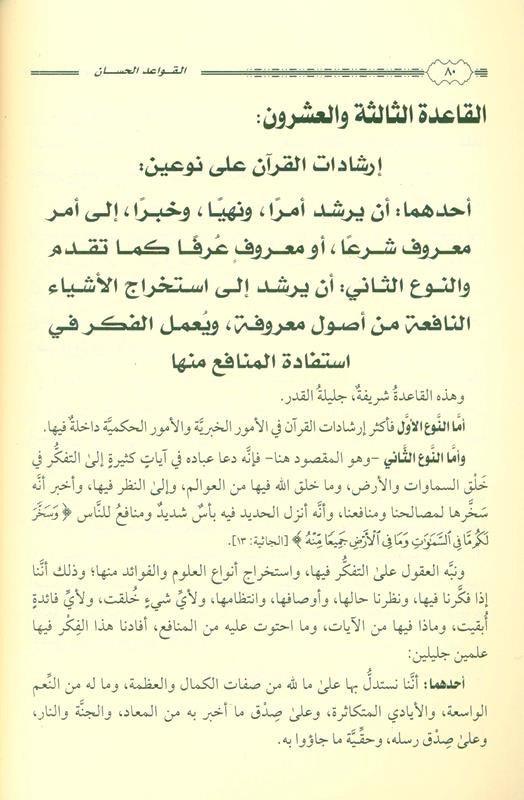 ٨٠
القـواعد الحسـان
القاعدة الثالثة والعشرون:
إرشادات القرآن على نوعين:
أحدهما: أن يرشد أمرًا، ونهيًا، وخبرًا، إلى أمر
معروف شرعًا، أو معروفٍ عُرفًا كما تقدم
والنوع الثاني: أن يرشد إلى استخراج الأشياء
النافعة من أصول معروفة، ويُعمل الفكر في
استفادة المنافع منها
وهذه القاعدةُ شريفةٌ، جليلةُ القدر.
أمَّا النَّوع الأوَّل فأكثر إرشادات القرآن في الأمور الخبريَّة والأمور الحكميَّة داخلةٌ فيها.
وأمَّا النَّوع الثَّاني -وهو المقصود هنا- فإنَّه دعا عباده في آياتٍ كثيرةٍ إلىٰ التفكُّر في
خَلْق السماوات والأرض، وما خلق الله فيها من العوالم، وإلىٰ النظر فيها، وأخبر أنَّه
سَخَّرها لمصالحنا ومنافعنا، وأنَّه أنزل الحديد فيه بأسٌ شديدٌ ومنافعُ للنَّاس ﴿ وَسَخَّرَ
لَكُم مَّا فِي ٱلسَّمَٰوَٰتِ وَمَا فِي ٱلْأَرْضِ جَمِيعًا مِّنْهُ ﴾ [الجاثية: ١٣].
ونبَّه العقول علىٰ التفكُّر فيها، واستخراج أنواع العلوم والفوائد منها؛ وذلك أنَّنا
إذا فكَّرنا فيها، ونظرنا حالها، وأوصافها، وانتظامها، ولأيِّ شيءٍ خُلقت، ولأيِّ فائدةٍ
أُبقيت، وماذا فيها من الآيات، وما احتوت عليه من المنافع، أفادنا هذا الفِكْر فيها
علمين جليلين:
أحدهما: أنَّنا نستدلُّ بها علىٰ ما لله من صفات الكمال والعظمة، وما له من النِّعم
الواسعة، والأيادي المتكاثرة، وعلىٰ صِدْق ما أخبر به من المعاد، والجنَّة والنار،
وعلىٰ صِدْق رسله، وحقِّيَّة ما جاؤوا به.